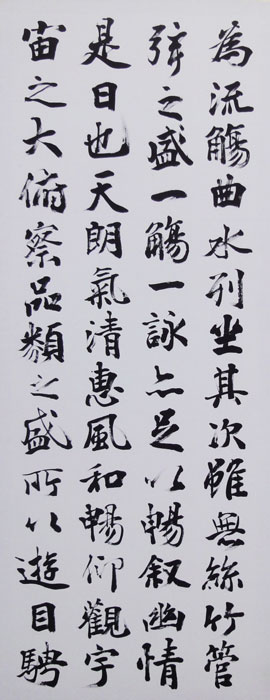 為流觴曲水列坐其次雖無絲竹管
弦之盛一觴一詠亦足以暢叙幽情
是日也天朗氣清惠風和暢仰觀宇
宙之大俯察品類之盛所以遊目騁